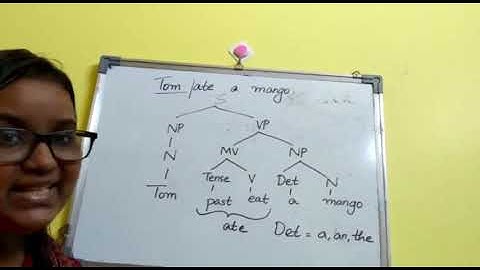 Tom / ate a mango
S
NP VP
N MV NP
Tom Tense V Det N
past eat a mango
ate Det = a, an, the